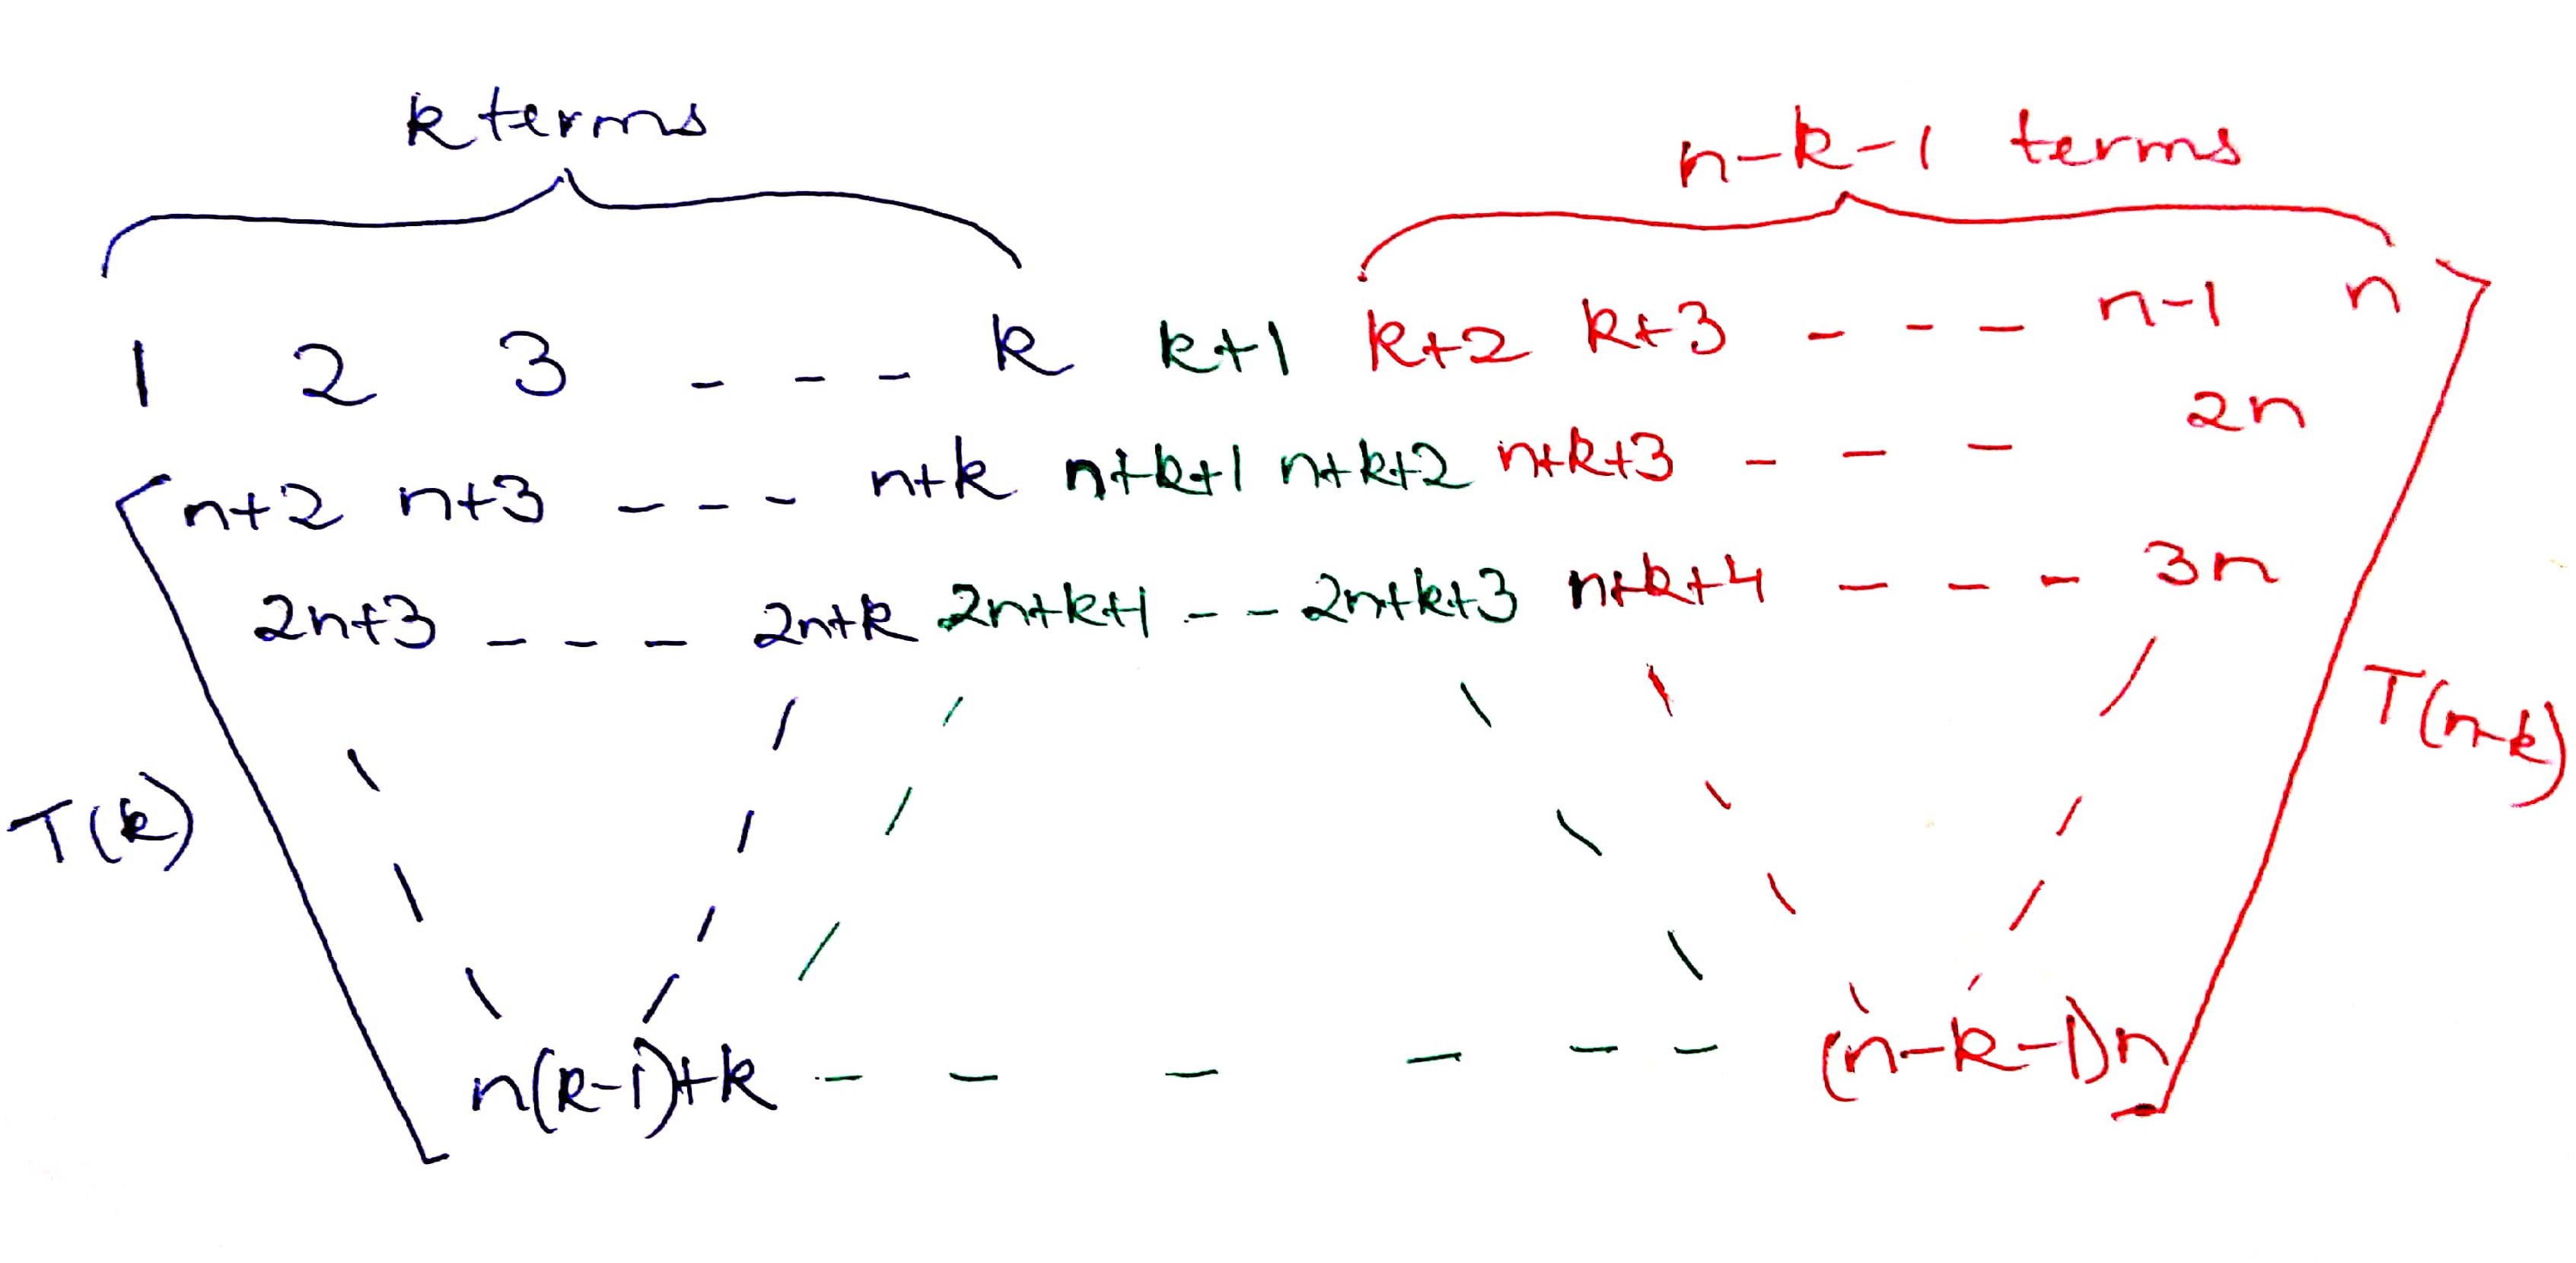 k terms
n-k-1 terms
1 2 3 - - - k k+1 k+2 k+3 - - - n-1 n
n+2 n+3 - - - n+k n+k+1 n+k+2 n+k+3 - - - 2n
2n+3 - - - 2n+k 2n+k+1 - - 2n+k+3 n+k+4 - - - 3n
T(k)
T(n-k)
n(k-1)+k - - - - - - (n-k-1)n